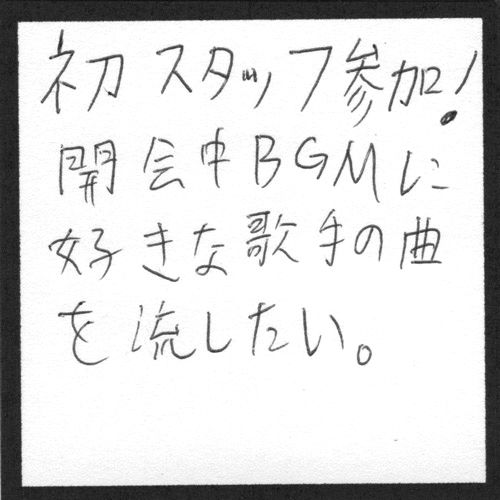 初スタッフ参加!
開会中BGMに
好きな歌手の曲
を流したい。